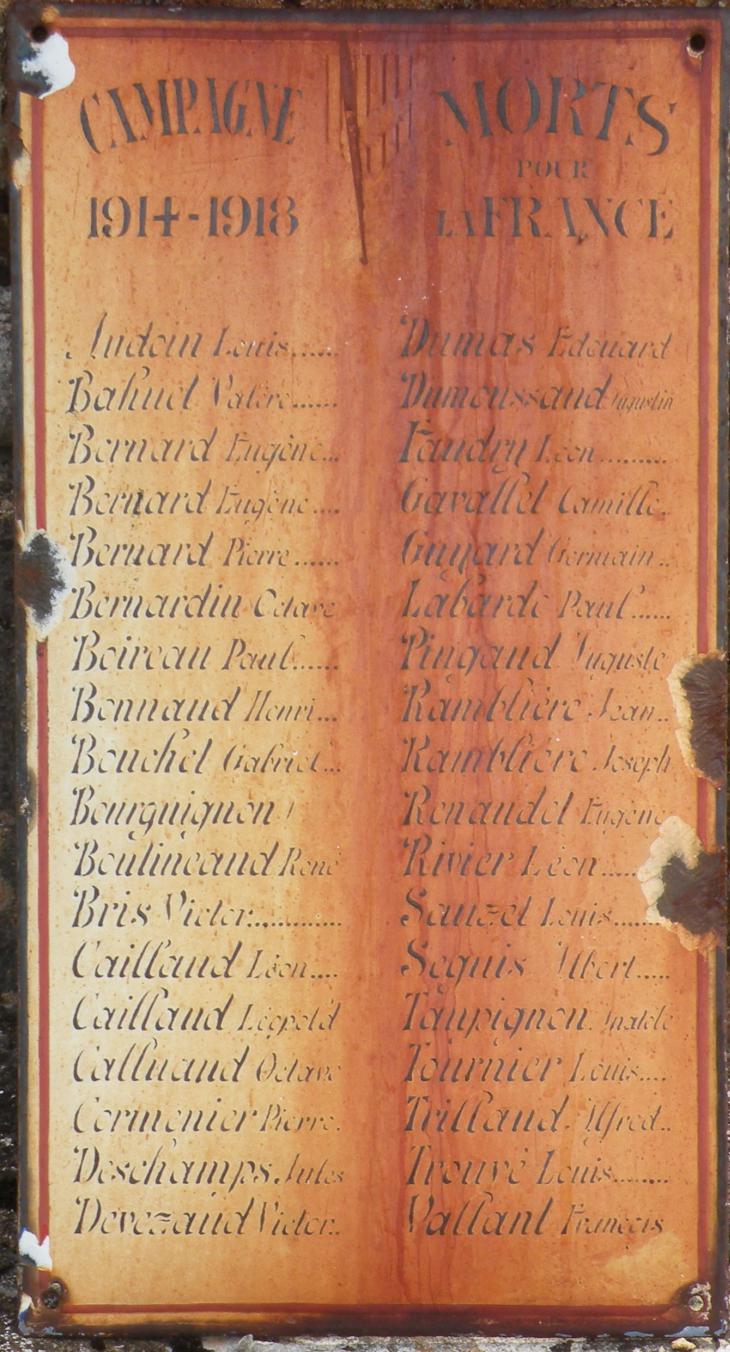 CAMPAGNE
1914-1918
Audoin Louis......
Bahuel Valère......
Bernard Eugène...
Bernard Eugène....
Bernard Pierre......
Bernardin Octave
Boireau Paul......
Bonnaud Henri...
Bouchel Gabriel...
Bourguignon
Boulineaud René
Bris Victor............
Caillaud Léon....
Caillaud Léopold
Calluaud Octave
Cormenier Pierre.
Deschamps Jules
Devezaud Victor..
MORTS
POUR
LA FRANCE
Dumas Edouard
Dumoussaud Augustin
Faudry Léon.........
Gavallet Camille..
Guyard Germain..
Labarde Paul.....
Pingaud Auguste
Ramblière Jean..
Ramblière Joseph
Renaudet Eugène
Rivier Léon.....
Sauzet Louis.......
Seguis Albert.....
Taupignon Anatole
Tournier Louis....
Trillaud Alfred..
Trouvé Louis........
Vallant François